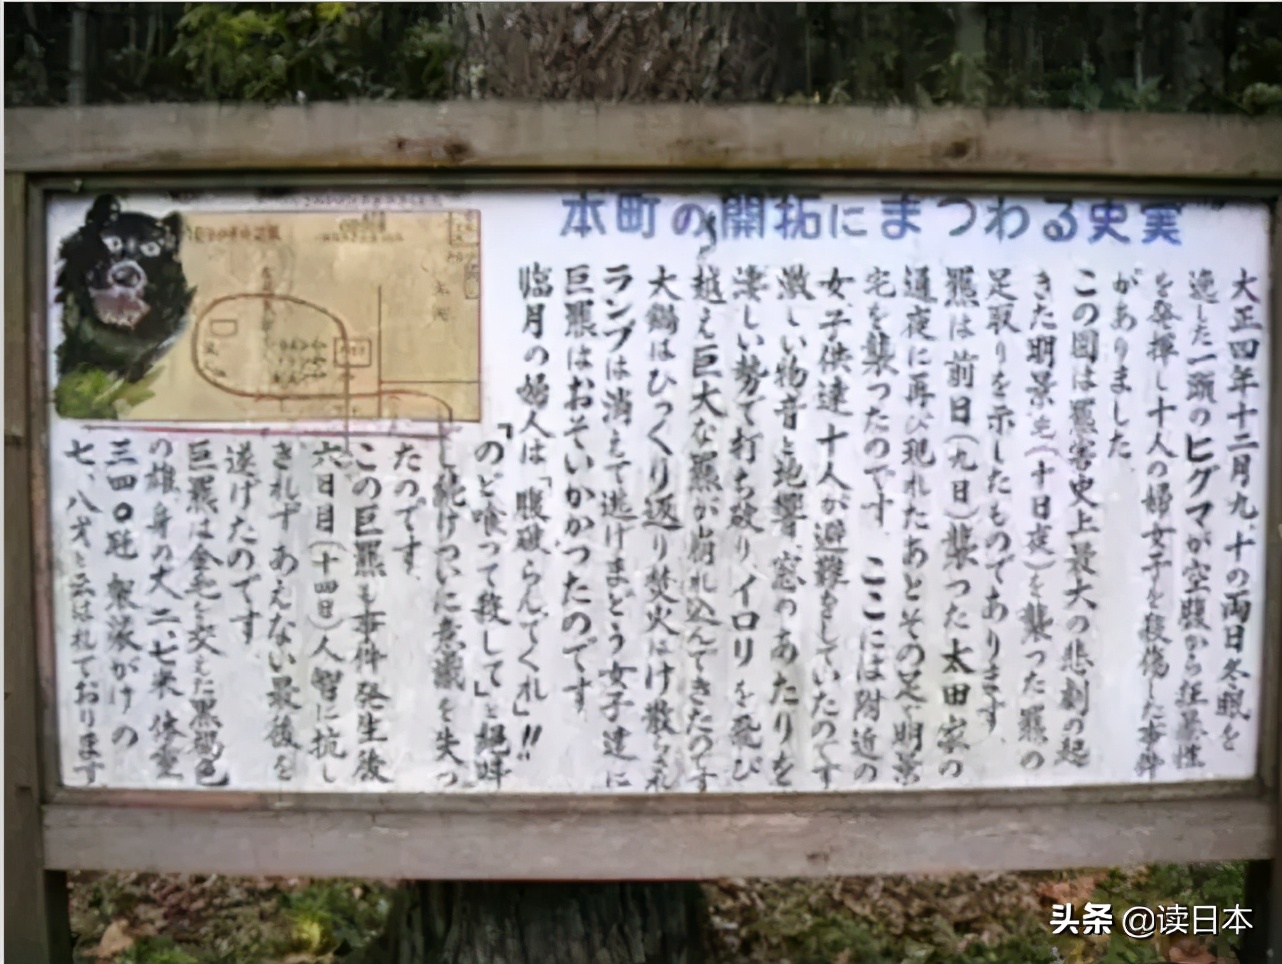 本町の開拓にまつわる史実
大正四年十二月九、十の両日冬眠を
逸した一頭のヒグマが空腹から狂暴性
を発揮し十人の婦女子を殺傷した事件
がありました
この図は羆害史上最大の悲劇の起
きた明景宅(十日夜)を襲った羆の
足取りを示したものであります
羆は前日(九日)襲った太田家の
通夜に再び現れたあとその足で明景
宅を襲ったのです ここには附近の
女子供達十人が避難をしていたのです
激しい物音と地響 窓のあたりを
凄しい勢で打ち破りイロリを飛び
越え巨大な羆が崩れ込んできたのです
大鍋はひっくり返り焚火はけ散らされ
ランプは消えて逃げまどう女子達に
巨羆はおそいかかったのです
臨月の婦人は「腹破らんでくれ」!!
「のど喰って殺して」と絶叫
し続けついに意識を失っ
たのです
この巨羆も事件発生後
六日目(十四日)人智に抗し
きれず あえない最後を
遂げたのです
巨羆は金毛を交えた黒褐色
の雄 身の丈二、七米 体重
三四〇瓩 袈裟がけの
七、八才と云はれております
头条 @读日本